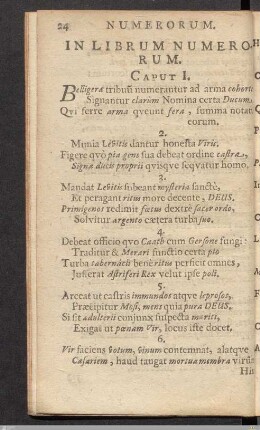 24 NUMERORUM.
IN LIBRUM NUMERO-
RUM.
CAPUT I.
Belligerâ tribûs numerantur ad arma cohorte
Signantur clarûm Nomina certa Ducum,
Qvi ferre arma qveunt fera, summa notat
eorum.
2.
Munia Lëbitis dantur honesta Viris.
Figere qvô pia gens sua debeat ordine castra,
Signa ducis proprii qvisqve seqvatur homo.
3.
Mandat Lebitis subeant mysteria sanctè,
Et peragant ritus more decente, DEUS.
Primigenos redimit fœtus dextrè sacer ordo,
Solvitur argento cætera turba suo.
4.
Debeat officio qvo Caath cum Gersone fungi:
Traditur & Merari functio certa pio
Turba tabernaculi benè ritus perficit omnes,
Jusserat Astriferi Rex velut ipse poli.
5.
Arceat ut castris immundos atqve leprosos,
Præcipitur Mosi, mens quia pura DEUS.
Si sit adulterii conjunx suspecta mariti,
Exigat ut pœnam Vir, locus iste docet.
6.
Vir faciens Votum, Vinum contemnat, alatqve
Cæsariem; haud tangat mortua membra viri
Hin